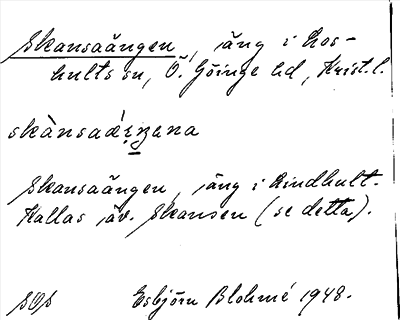 Skansaängen, äng i Los-
hults sn, Ö. Göinge hd, Krist. l.
skànsaäŋana
Skansaängen, äng i Rindhult.
Kallas äv. Skansen (se detta).
Esbjörn Blohmé 1948.